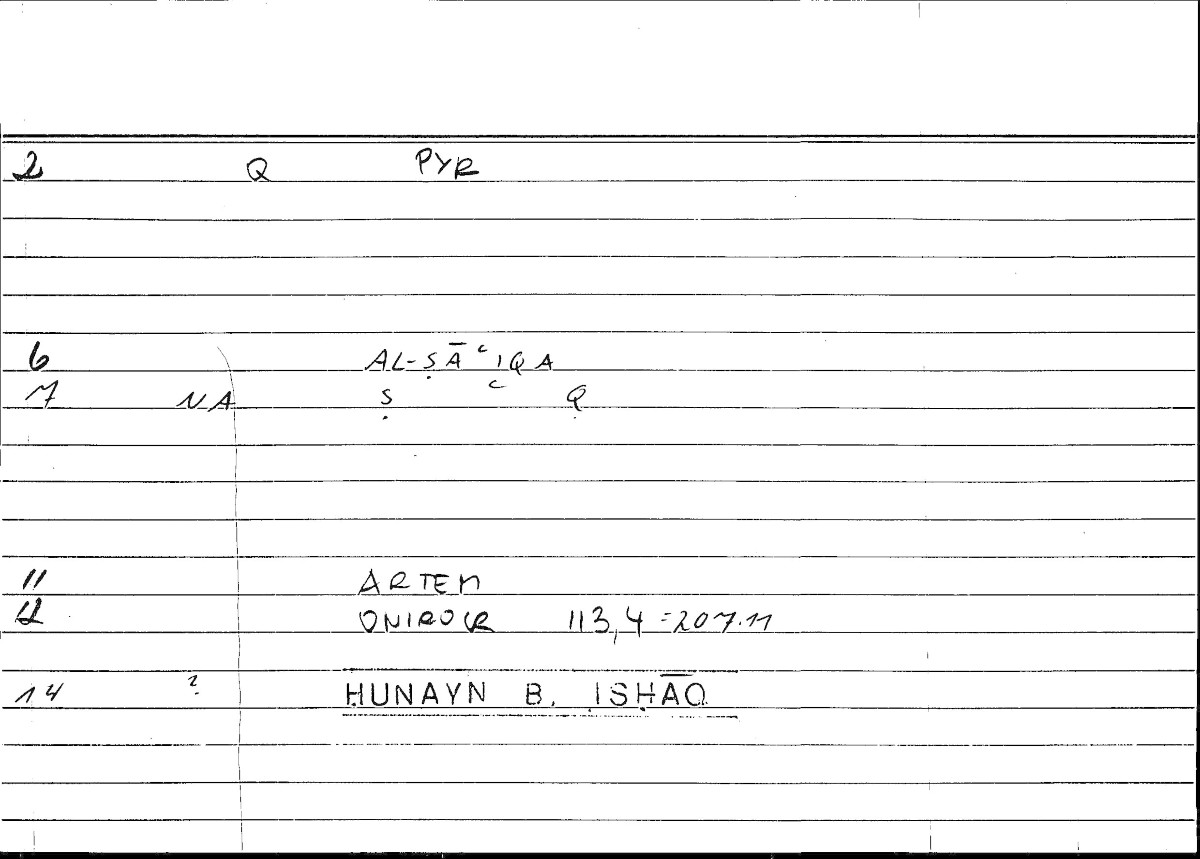 2 Q PYR
6 AL-ṢĀʿIQA
7 NA Ṣ ʿ Q
11 ARTEM
12 ONIROCR 113,4=207.11
14 ? ḤUNAYN B. ISḤĀQ